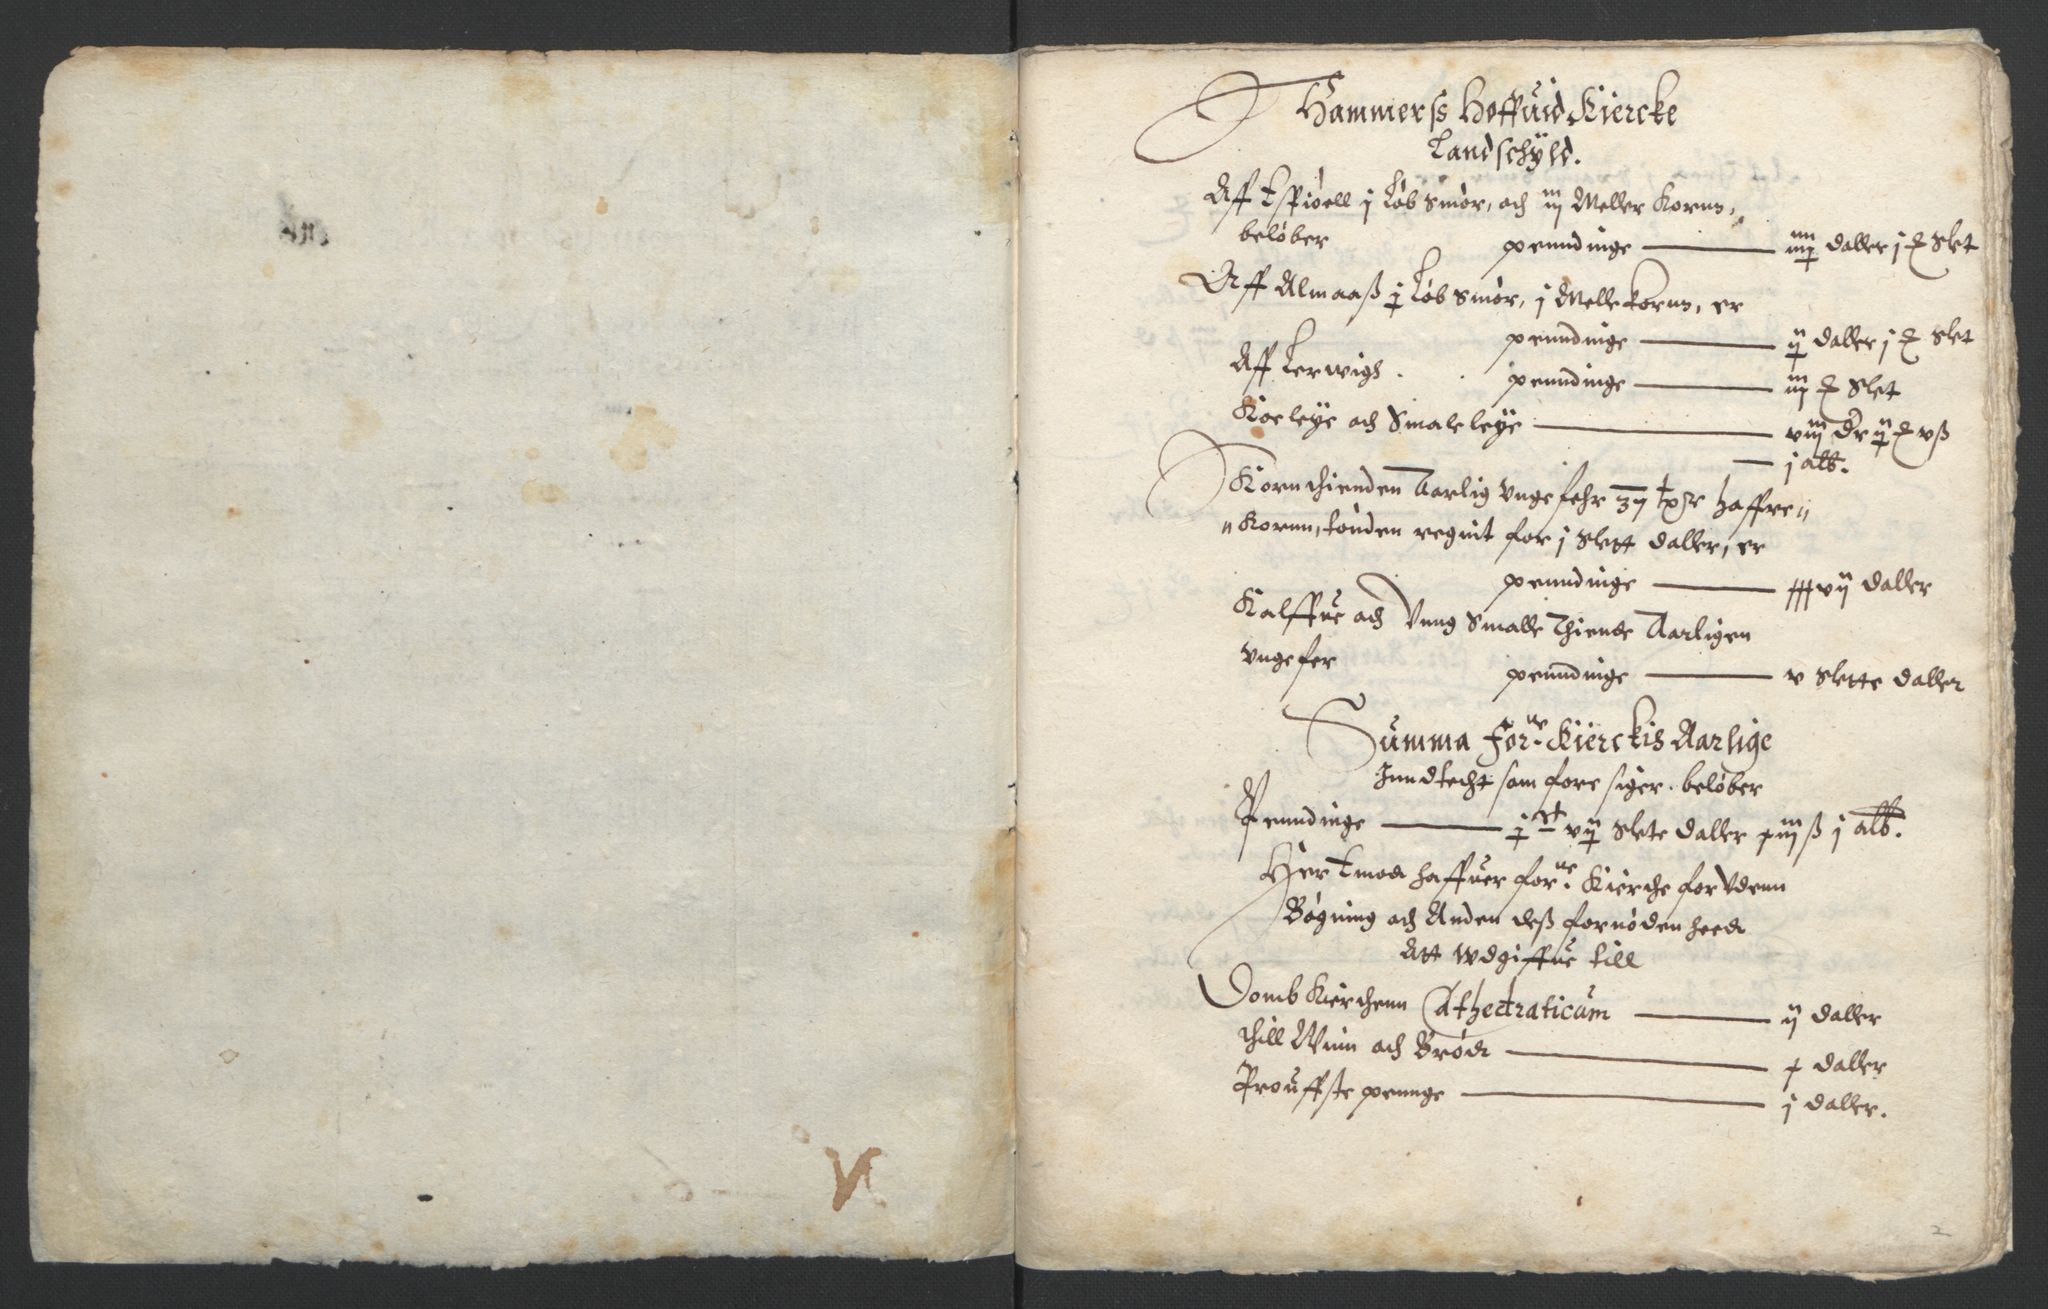 Hammerss Hoffuid Kiercke
Landschyld.
Aff Espioell j Løb smør, och iij Meller Korns,
beløber penndinge —— daller j slet
Aff Almaaß Løb smør, j Melle korns, er
penndinge —— ij daller j slet
Aff Lerwigh. penndinge —— iij slet
Koeleÿe och Smaleleÿe —— viij dr ij
— j alb.
Kornthienden Aarlig Vngefehr 37 haffre"
"Korn, tønden regnit for j slett daller, er
penndinge —— vij daller
Kalffue och Vung Smalle Thiende Aarligen
vngefer penndinge —— v slette daller
Summa For.ne Kierckis Aarlige
Inndtecht som fore siger. beløber
Penndinge —— slete daller ß j alb.
Her Emod haffuer for.ne Kierche foruden
Bøgning och Anden deß fornødenheed
Att wdgiffue till
Domb Kierchenn Cathedraticum —— ij daller
thill Wiin och Brød —— daller
Prouffste pennge —— j daller.
2